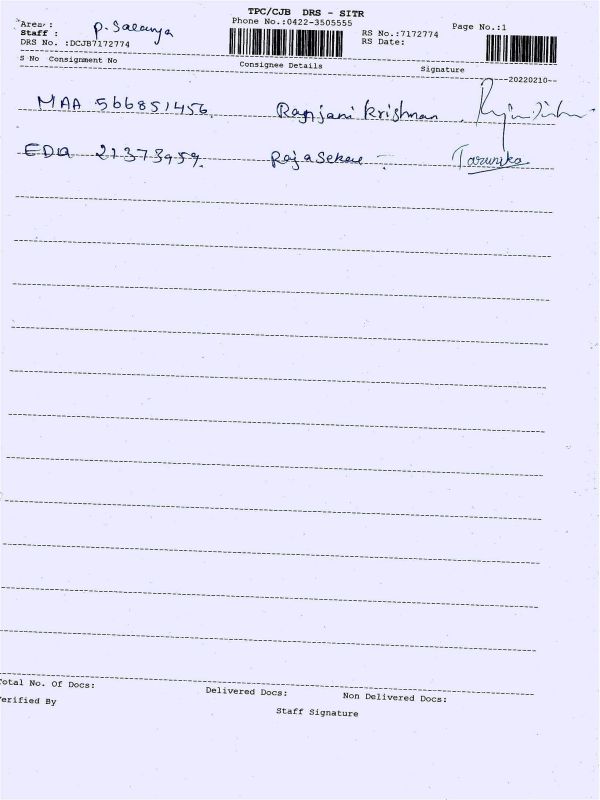 TPC/CJB DRS - SITR
Area: :
Phone No.:0422-3505555
Page No.:1
Staff : P. Saranya
RS No.:7172774
DRS No. :DCJB7172774
RS Date:
S No Consignment No Consignee Details Signature
--20220210--
MAA 566851456. Ranjani Krishnan
EDA 21373959. Rajasekar Tarunika
Total No. Of Docs: Delivered Docs: Non Delivered Docs:
Verified By
Staff Signature